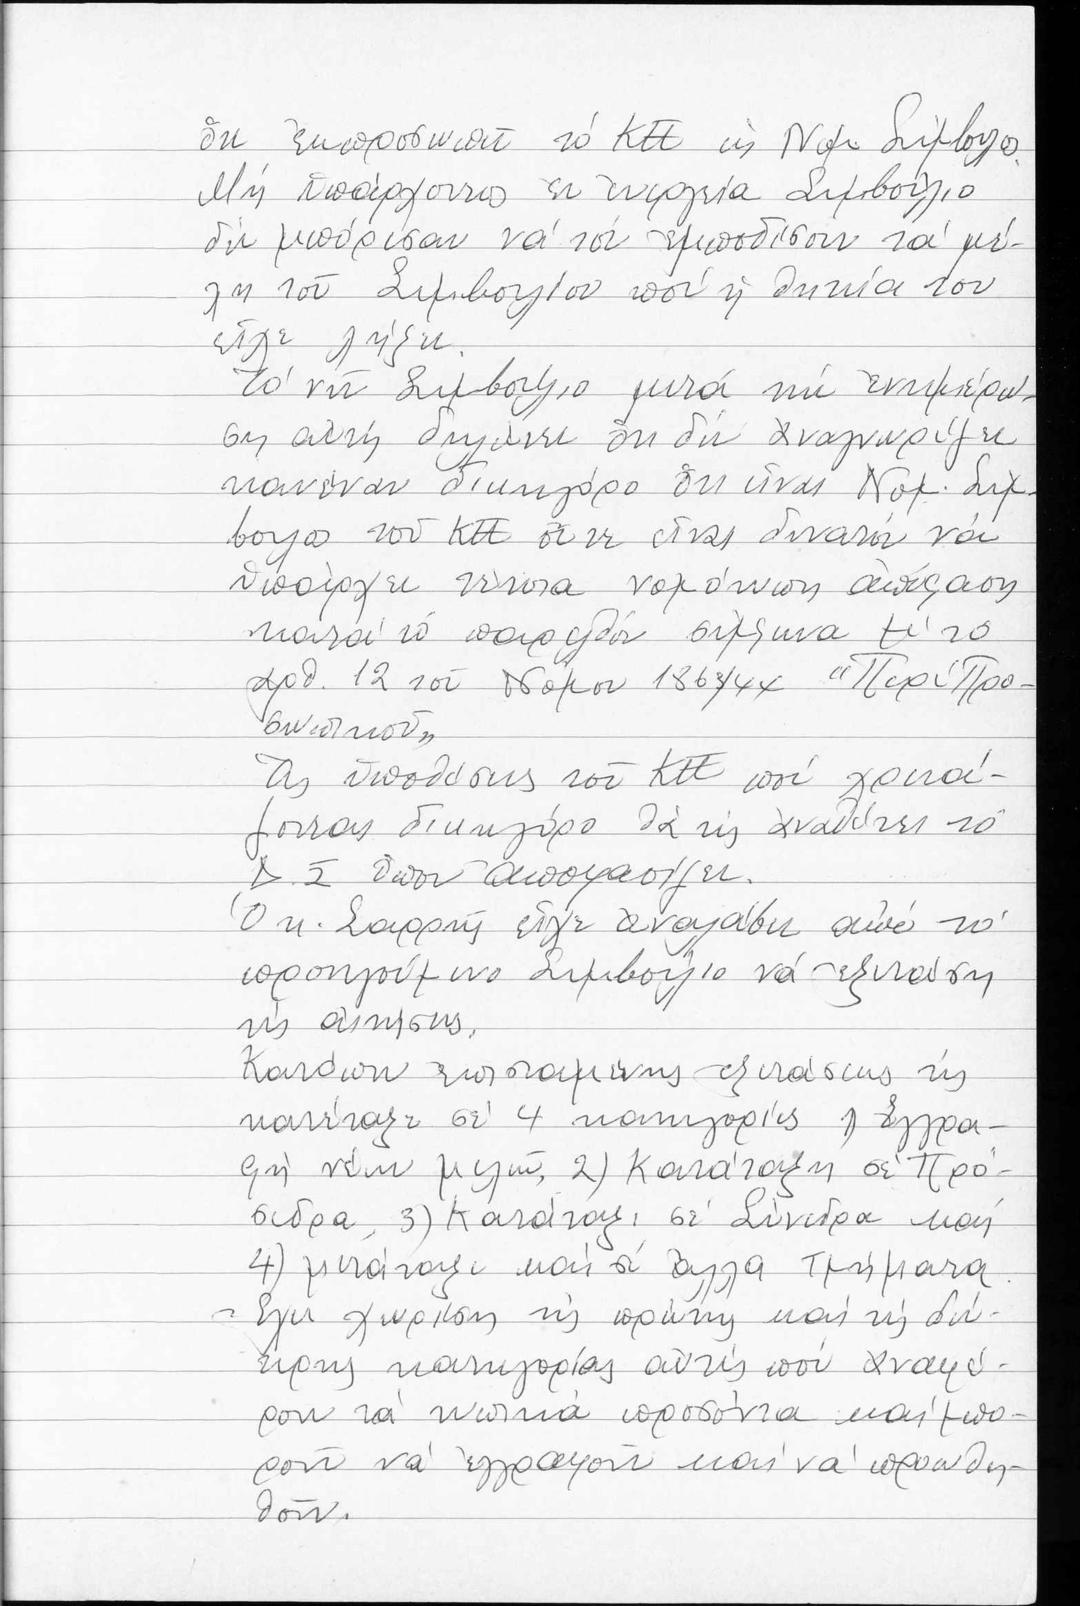 ὅτι ἐκπροσωπεῖ τό ΚΠ ὡς Νομ. Σύμβουλος.
Μή ὑπάρχοντος ἐν ἐνεργεία Συμβούλιο
δέν μπόρεσαν νά τόν ἐμποδίσουν τά μέ-
λη τοῦ Συμβουλίου πού ἡ θητεία του
εἶχε λήξει.
Τό νῦν Συμβούλιο μετά τήν ἐνημέρω-
ση αὐτή δηλώνει ὅτι δέν ἀναγνωρίζει
κανέναν δικηγόρο ὅτι εἶναι Νομ. Σύμ-
βουλο τοῦ ΚΠ οὔτε εἶναι δυνατόν νά
ὑπάρχει τέτοια νομότυπη ἀπόφαση
κατά τό παρελθόν σύμφωνα μέ τό
ἀρθ. 12 τοῦ Νόμου 1863/44 "Περί Προ-
σωπικοῦ"
Τίς ὑποθέσεις τοῦ ΚΠ πού χρειά-
ζονται δικηγόρο θά τίς ἀναθέτει τό
Δ.Σ ὅπου ἀποφασίζει.
Ὁ κ. Σαρρής εἶχε ἀναλάβει ἀπό τό
προηγούμενο Συμβούλιο νά ἐξετάση
τίς αἰτήσεις.
Κατόπιν ἐπισταμένης ἐξετάσεως τίς
κατέταξε σέ 4 κατηγορίες 1) Ἐγγρα-
φή νέων μελῶν, 2) Κατάταξη σέ Πρό-
σεδρα, 3) Κατάταξι σέ Σύνεδρα καί
4) μετάταξι καί σέ ἄλλα Τμήματα.
Ἔχει χωρίση τῆς πρώτης καί τῆς δευ-
τέρης κατηγορίας αὐτές πού ἀναφέ-
ρουν τά τυπικά προσόντα καί μπο-
ροῦν νά ἐγγραφοῦν καί νά προωθη-
θοῦν.